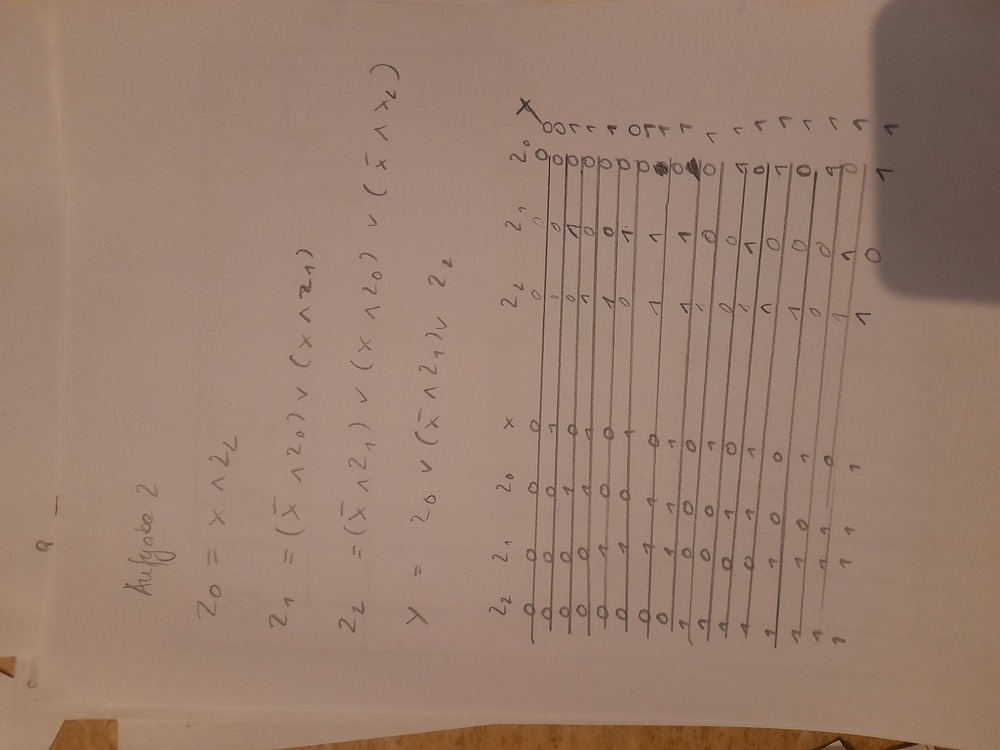 Aufgabe 2
z0 = x ∧ z2
z1 = (x̄ ∧ z0) ∨ (x ∧ z1)
z2 = (x̄ ∧ z1) ∨ (x ∧ z0) ∨ (x̄ ∧ x2)
y = z0 ∨ (x̄ ∧ z1) ∨ z2
z2 z1 z0 x z2 z1 z0 x
0 0 0 0 0 0 0 0
0 0 0 1 0 0 0 0
0 0 1 0 0 1 0 1
0 0 1 1 1 0 0 1
0 1 0 0 1 0 0 1
0 1 0 1 0 1 0 0
0 1 1 0 1 1 0 1
0 1 1 1 1 1 0 1
1 0 0 0 1 0 0 1
1 0 0 1 0 0 1 1
1 0 1 0 1 1 0 1
1 0 1 1 1 0 1 1
1 1 0 0 1 0 0 1
1 1 0 1 0 0 1 1
1 1 1 0 1 1 0 1
1 1 1 1 1 0 1 1